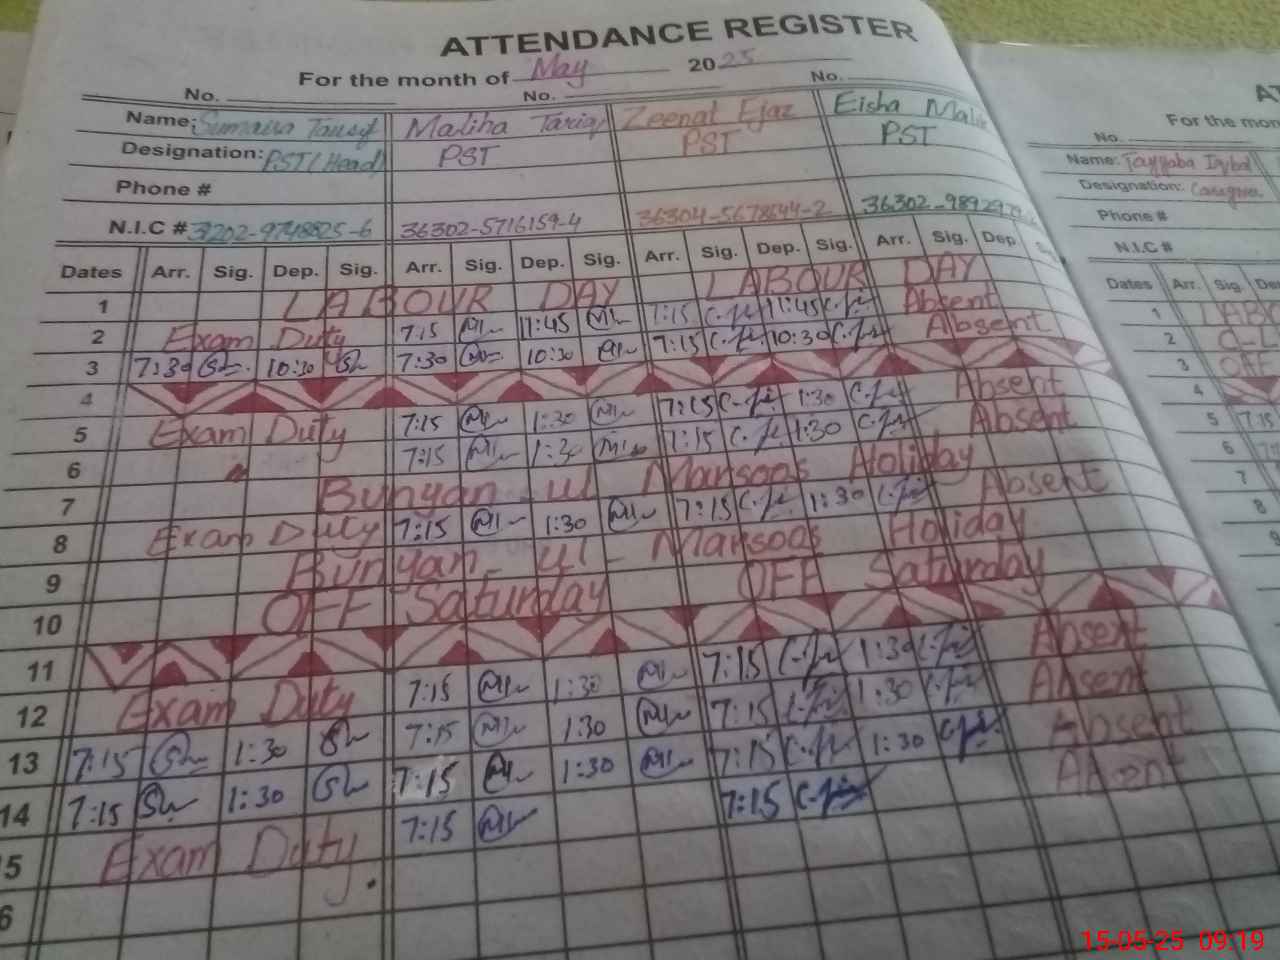 ATTENDANCE REGISTER
For the month of May 2025
No. No. No.
Name: Sumaira Tausif Maliha Tariq Zeenat Ejaz Eisha Malik
Designation: PST (Head) PST PST PST
Phone #
N.I.C # 36302-5716159-4 36304-5678644-2 36302-989297
Dates Arr. Sig. Dep. Sig. Arr. Sig. Dep. Sig. Arr. Sig. Dep. Sig. Arr. Sig. Dep
1 LABOUR DAY LABOUR DAY
2 Exam Duty 7:15 11:45 7:15 11:45 Absent
3 7:30 10:30 7:30 10:30 7:15 10:30 Absent
4
5 Exam Duty 7:15 1:30 7:15 1:30 Absent
6 7:15 1:30 7:15 1:30 Absent
7 Bunyan-ul Marsoos Holiday
8 Exam Duty 7:15 1:30 7:15 1:30 Absent
9 Bunyan-ul-Marsoos Holiday
10 OFF Saturday OFF Saturday
11
12 Exam Duty 7:15 1:30 7:15 1:30 Absent
13 7:15 1:30 7:15 1:30 7:15 1:30 Absent
14 7:15 1:30 7:15 1:30 7:15 1:30 Absent
5 Exam Duty 7:15 7:15 Absent
6
For the mon
No.
Name: Tayyaba Iqbal
Designation:
Phone #
N.I.C #
Dates Arr. Sig.
1
2
3 OFF
4
5 7:15
6
7
8
15-05-25 09:19